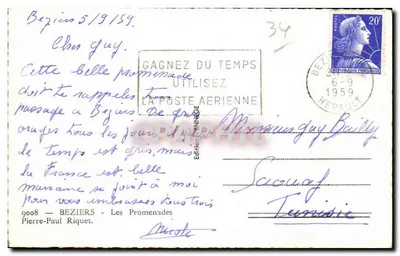 Beziers 5/9/59.
Cher guy.
Cette belle promenade
doit te rappeler ton
passage a Beziers. De gros
orages tous les jours,
le temps est gris, mais
la France est belle
maname se joint à moi
pour vous embrasser tous trois
Nicole
9008 — BEZIERS - Les Promenades
Pierre-Paul Riquet.
34
GAGNEZ DU TEMPS
UTILISEZ
LA POSTE AERIENNE
BEZIERS
6-9
1959
HERAULT
20F
Monsieur guy Bailly
Tunisie